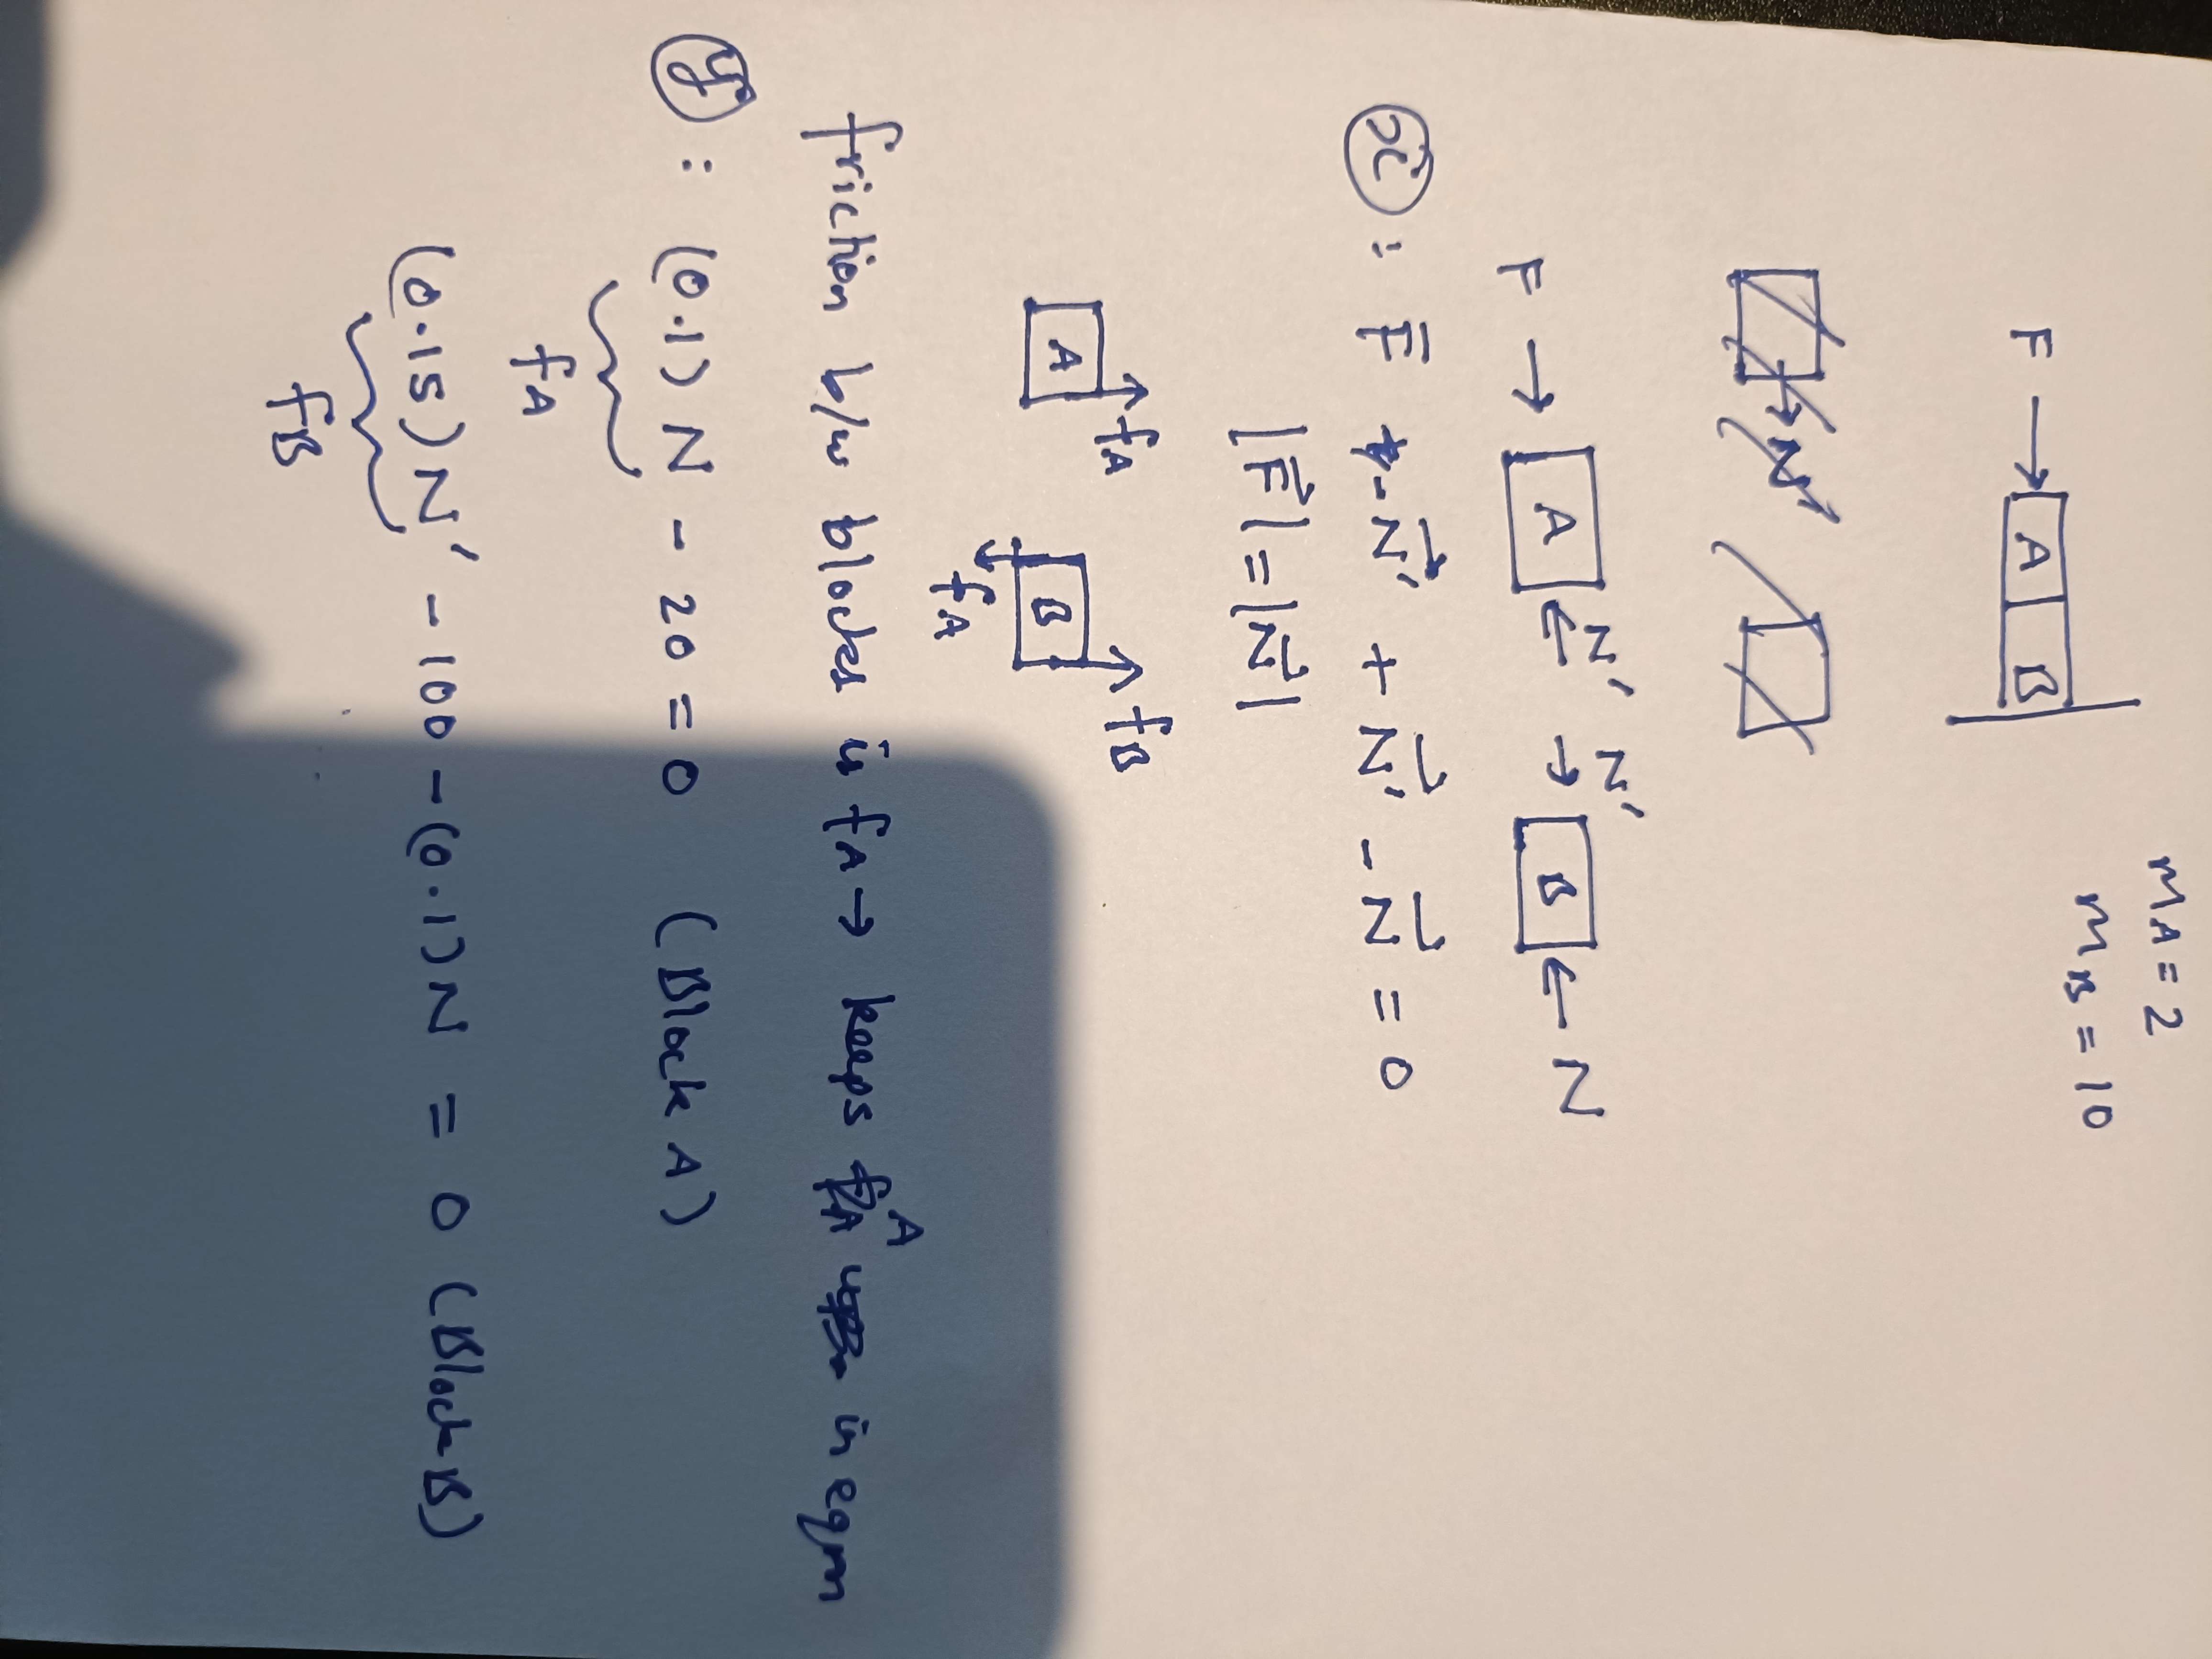 mA = 2
mB = 10
F → A B
N'
F → A ← N' N' → B ← N
x : F - N' + N' - N = 0
|F| = |N|
A fA B fB
fA
friction b/w blocks is fA → keeps A in eqm
y : (0.1) N - 20 = 0 (Block A)
fA
(0.15) N' - 100 - (0.1) N = 0 (Block B)
fB